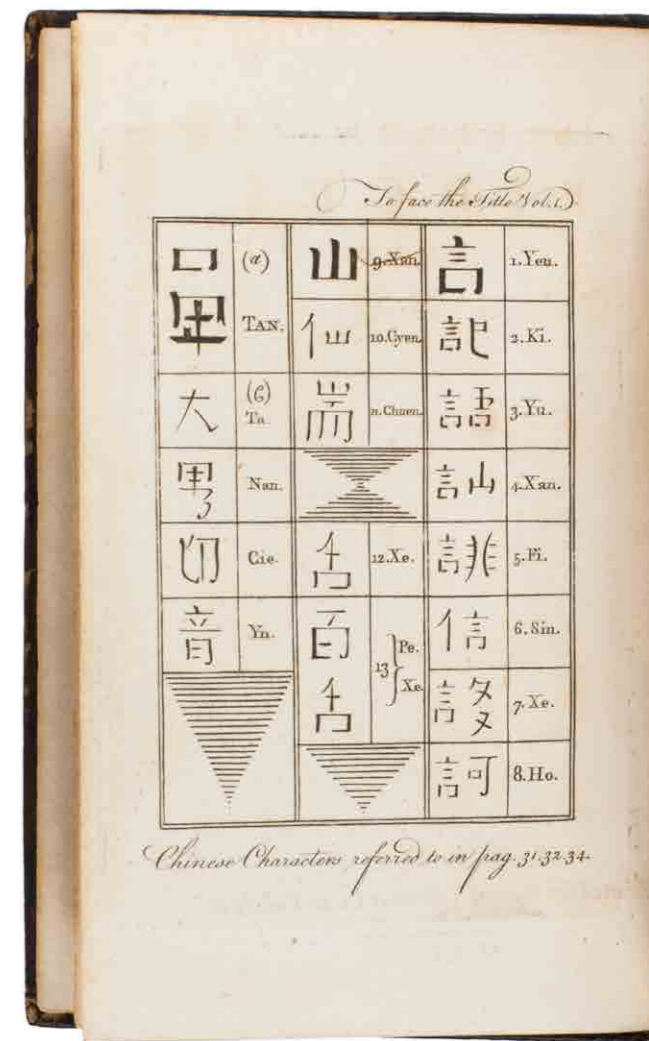 To face the Title Vol. 1.
(a)
TAN.
大 (b) Ta.
男 Nan.
切 Cie.
音 Yn.
山 9. Xan.
仙 10. Cyen.
耑 11. Chuen.
舌 12. Xe.
百 13 Pe.
舌 Xe.
言 1. Yen.
記 2. Ki.
語 3. Yu.
訕 4. Xan.
誹 5. Fi.
信 6. Sin.
設 7. Xe.
訶 8. Ho.
Chinese Characters referred to in pag. 31. 32. 34.